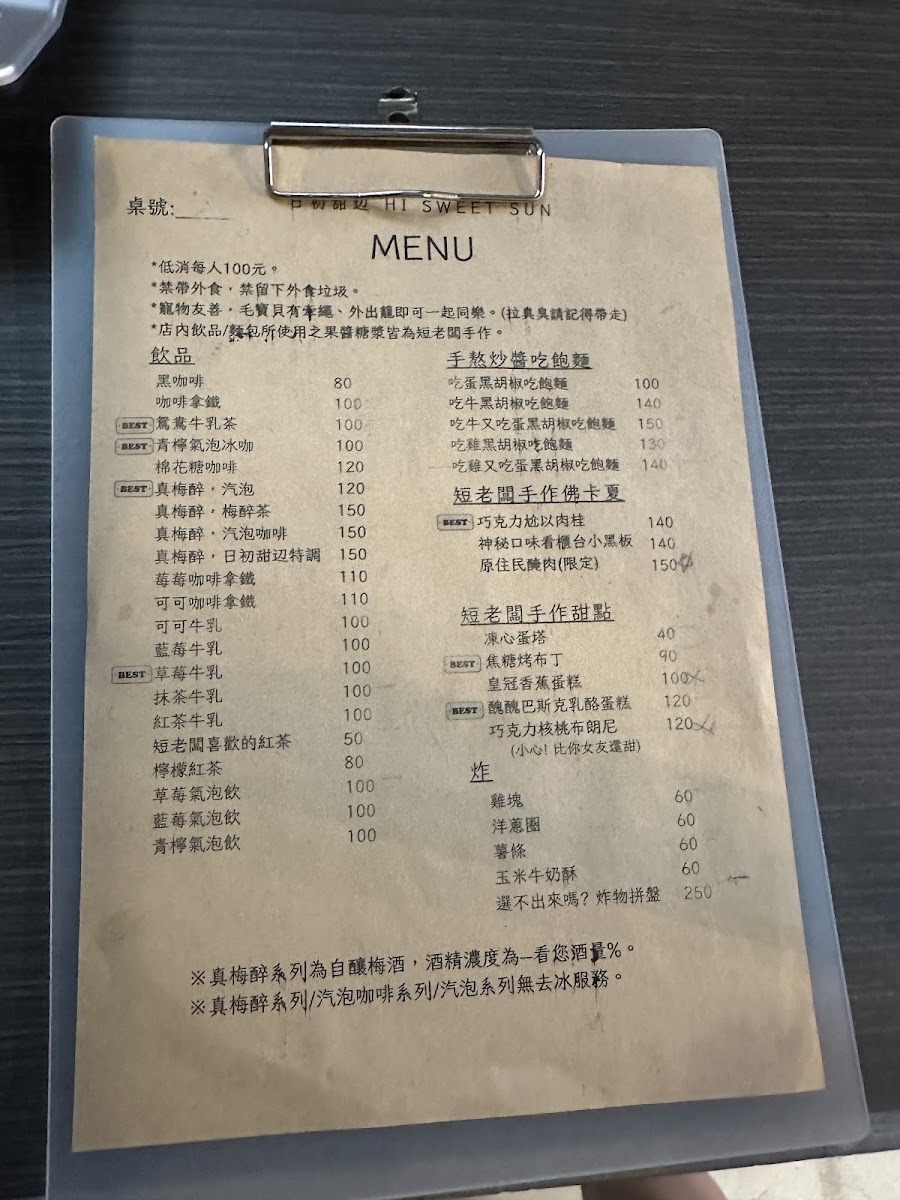 桌號:_____
日初甜辺 HI SWEET SUN
MENU
*低消每人100元。
*禁帶外食，禁留下外食垃圾。
*寵物友善，毛寶貝有牽繩、外出籠即可一起同樂。(拉臭臭請記得帶走)
*店內飲品/麵包所使用之果醬糖漿皆為短老闆手作。
飲品
黑咖啡 80
咖啡拿鐵 100
BEST 鴛鴦牛乳茶 100
BEST 青檸氣泡冰咖 100
棉花糖咖啡 120
BEST 真梅醉，汽泡 120
真梅醉，梅醉茶 150
真梅醉，汽泡咖啡 150
真梅醉，日初甜辺特調 150
莓莓咖啡拿鐵 110
可可咖啡拿鐵 110
可可牛乳 100
藍莓牛乳 100
BEST 草莓牛乳 100
抹茶牛乳 100
紅茶牛乳 100
短老闆喜歡的紅茶 50
檸檬紅茶 80
草莓氣泡飲 100
藍莓氣泡飲 100
青檸氣泡飲 100
手熬炒醬吃飽麵
吃蛋黑胡椒吃飽麵 100
吃牛黑胡椒吃飽麵 140
吃牛又吃蛋黑胡椒吃飽麵 150
吃雞黑胡椒吃飽麵 130
吃雞又吃蛋黑胡椒吃飽麵 140
短老闆手作佛卡夏
BEST 巧克力尬以肉桂 140
神秘口味看櫃台小黑板 140
原住民醃肉(限定) 150
短老闆手作甜點
凍心蛋塔 40
BEST 焦糖烤布丁 90
皇冠香蕉蛋糕 100
BEST 醜醜巴斯克乳酪蛋糕 120
巧克力核桃布朗尼 120
(小心! 比你女友還甜)
炸
雞塊 60
洋蔥圈 60
薯條 60
玉米牛奶酥 60
選不出來嗎? 炸物拼盤 250
※真梅醉系列為自釀梅酒，酒精濃度為—看您酒量%。
※真梅醉系列/汽泡咖啡系列/汽泡系列無去冰服務。